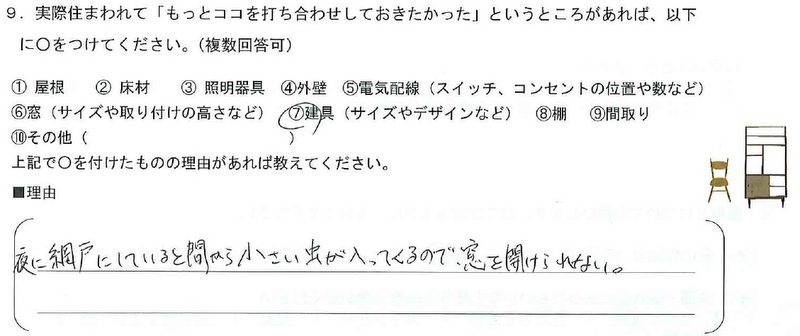 9．実際住まわれて「もっとココを打ち合わせしておきたかった」というところがあれば、以下
に〇をつけてください。（複数回答可）
① 屋根　② 床材　③ 照明器具　④外壁　⑤電気配線（スイッチ、コンセントの位置や数など）
⑥窓（サイズや取り付けの高さなど）　⑦建具（サイズやデザインなど）　⑧棚　⑨間取り
⑩その他（　　　　　　　　　　　　）
上記で〇を付けたものの理由があれば教えてください。
■理由
夜に網戸にしていると間から小さい虫が入ってくるので、窓を開けられない。